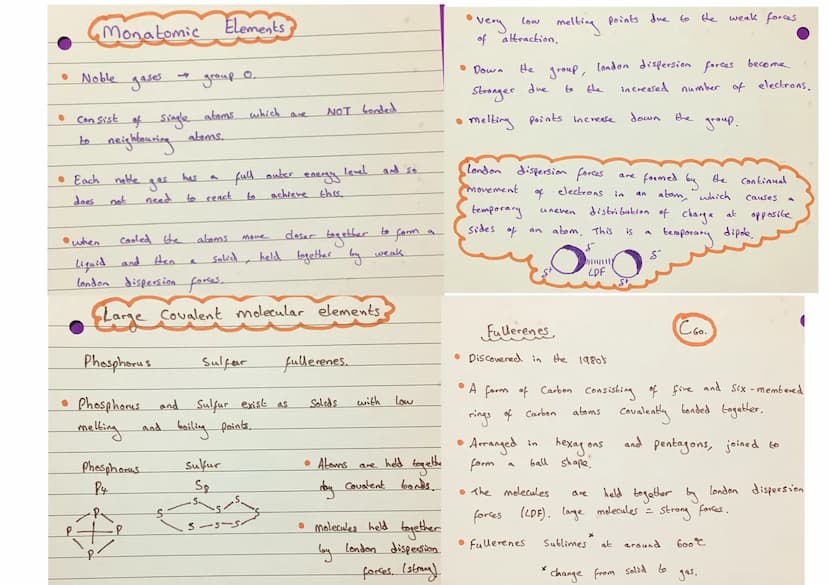 Monatomic Elements
• Noble gases → group 0.
• Consist of single atoms which are NOT bonded
to neighbouring atoms.
• Each noble gas has a full outer energy level and so
does not need to react to achieve this.
• when cooled the atoms move closer together to form a
liquid and then a solid, held together by weak
london dispersion forces.
• Very low melting points due to the weak forces
of attraction.
• Down the group, london dispersion forces become
stronger due to the increased number of electrons.
• melting points increase down the group.
London dispersion forces are formed by the continual
movement of electrons in an atom, which causes a
temporary uneven distribution of charge at opposite
sides of an atom. This is a temporary dipole.
δ- δ-
LDF
δ+ δ+
Large Covalent molecular elements
Phosphorus Sulfur fullerenes.
• Phosphorus and Sulfur exist as Solids with low
melting and boiling points.
Phosphorus Sulfur
P4 S8
P P P P
S S S S S S S
• Atoms are held togethe
by Covalent bonds.
• Molecules held together
by london dispersion
forces. (strong)
Fullerenes C60.
• Discovered in the 1980's
• A form of Carbon Consisting of five and six-membered
rings of Carbon atoms Covalently bonded together.
• Arranged in hexagons and pentagons, joined to
form a ball shape.
• The molecules are held together by london dispersion
forces (LDF). large molecules = strong forces.
• Fullerenes Sublimes* at around 600°C
* change from solid to gas.